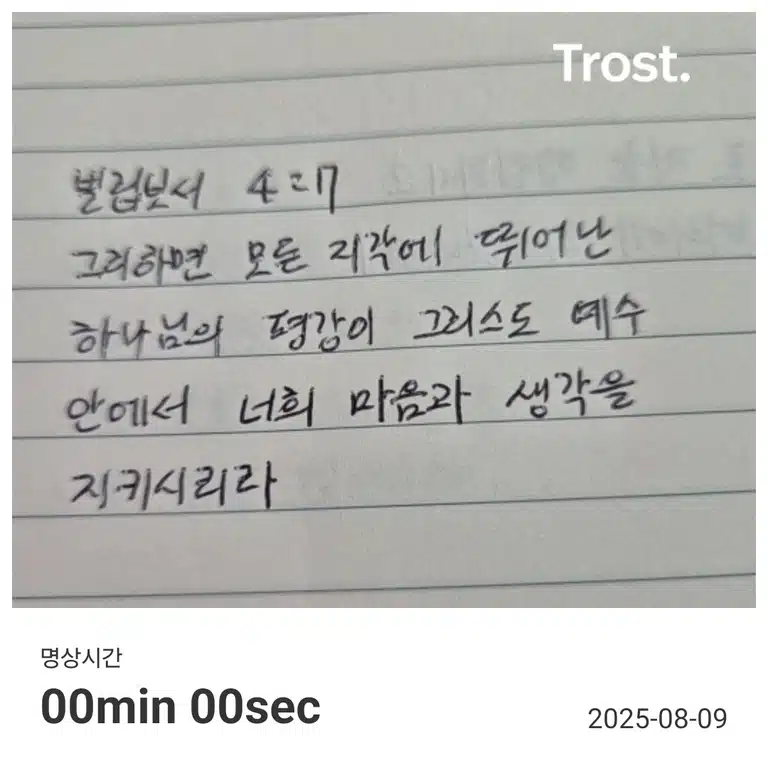 Trost.
빌립보서 4:7
그리하면 모든 지각에 뛰어난
하나님의 평강이 그리스도 예수
안에서 너희 마음과 생각을
지키시리라
명상시간
00min 00sec
2025-08-09